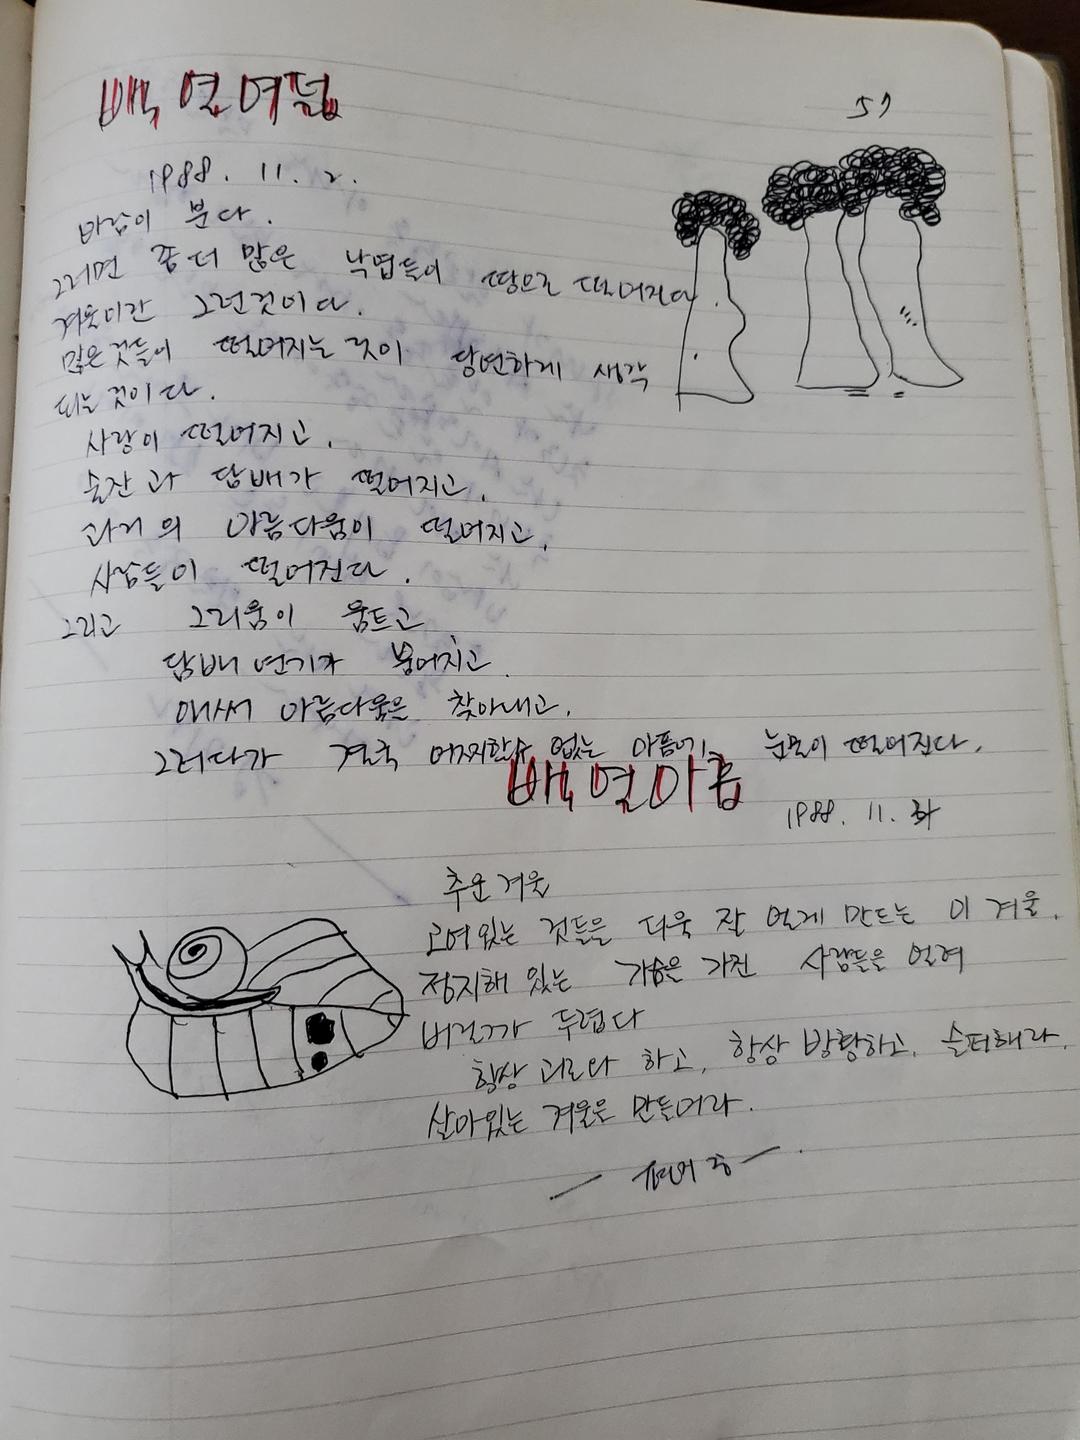 백 열여덟
57
1988. 11. 2.
바람이 분다.
그러면 좀더 많은 낙엽들이 땅으로 떨어진다.
겨울이란 그런것이다.
많은것들이 떨어지는 것이 당연하게 생각
되는 것이다.
사랑이 떨어지고,
술잔과 담배가 떨어지고,
과거의 아름다움이 떨어지고,
사람들이 떨어진다.
그리고 그리움이 움트고
담배 연기가 뿜어지고
애써 아름다움은 찾아내고,
그러다가 결국 어찌할수 없는 아픔에 눈물이 떨어진다.
백 열아홉
1988. 11.
추운겨울
고여있는 것들을 더욱 잘 얼게 만드는 이 겨울,
정지해 있는 가슴은 가진 사람들을 얼려
버릴까 두렵다
항상 괴로와 하고, 항상 방황하고, 슬퍼해라.
살아있는 겨울은 만들어라.